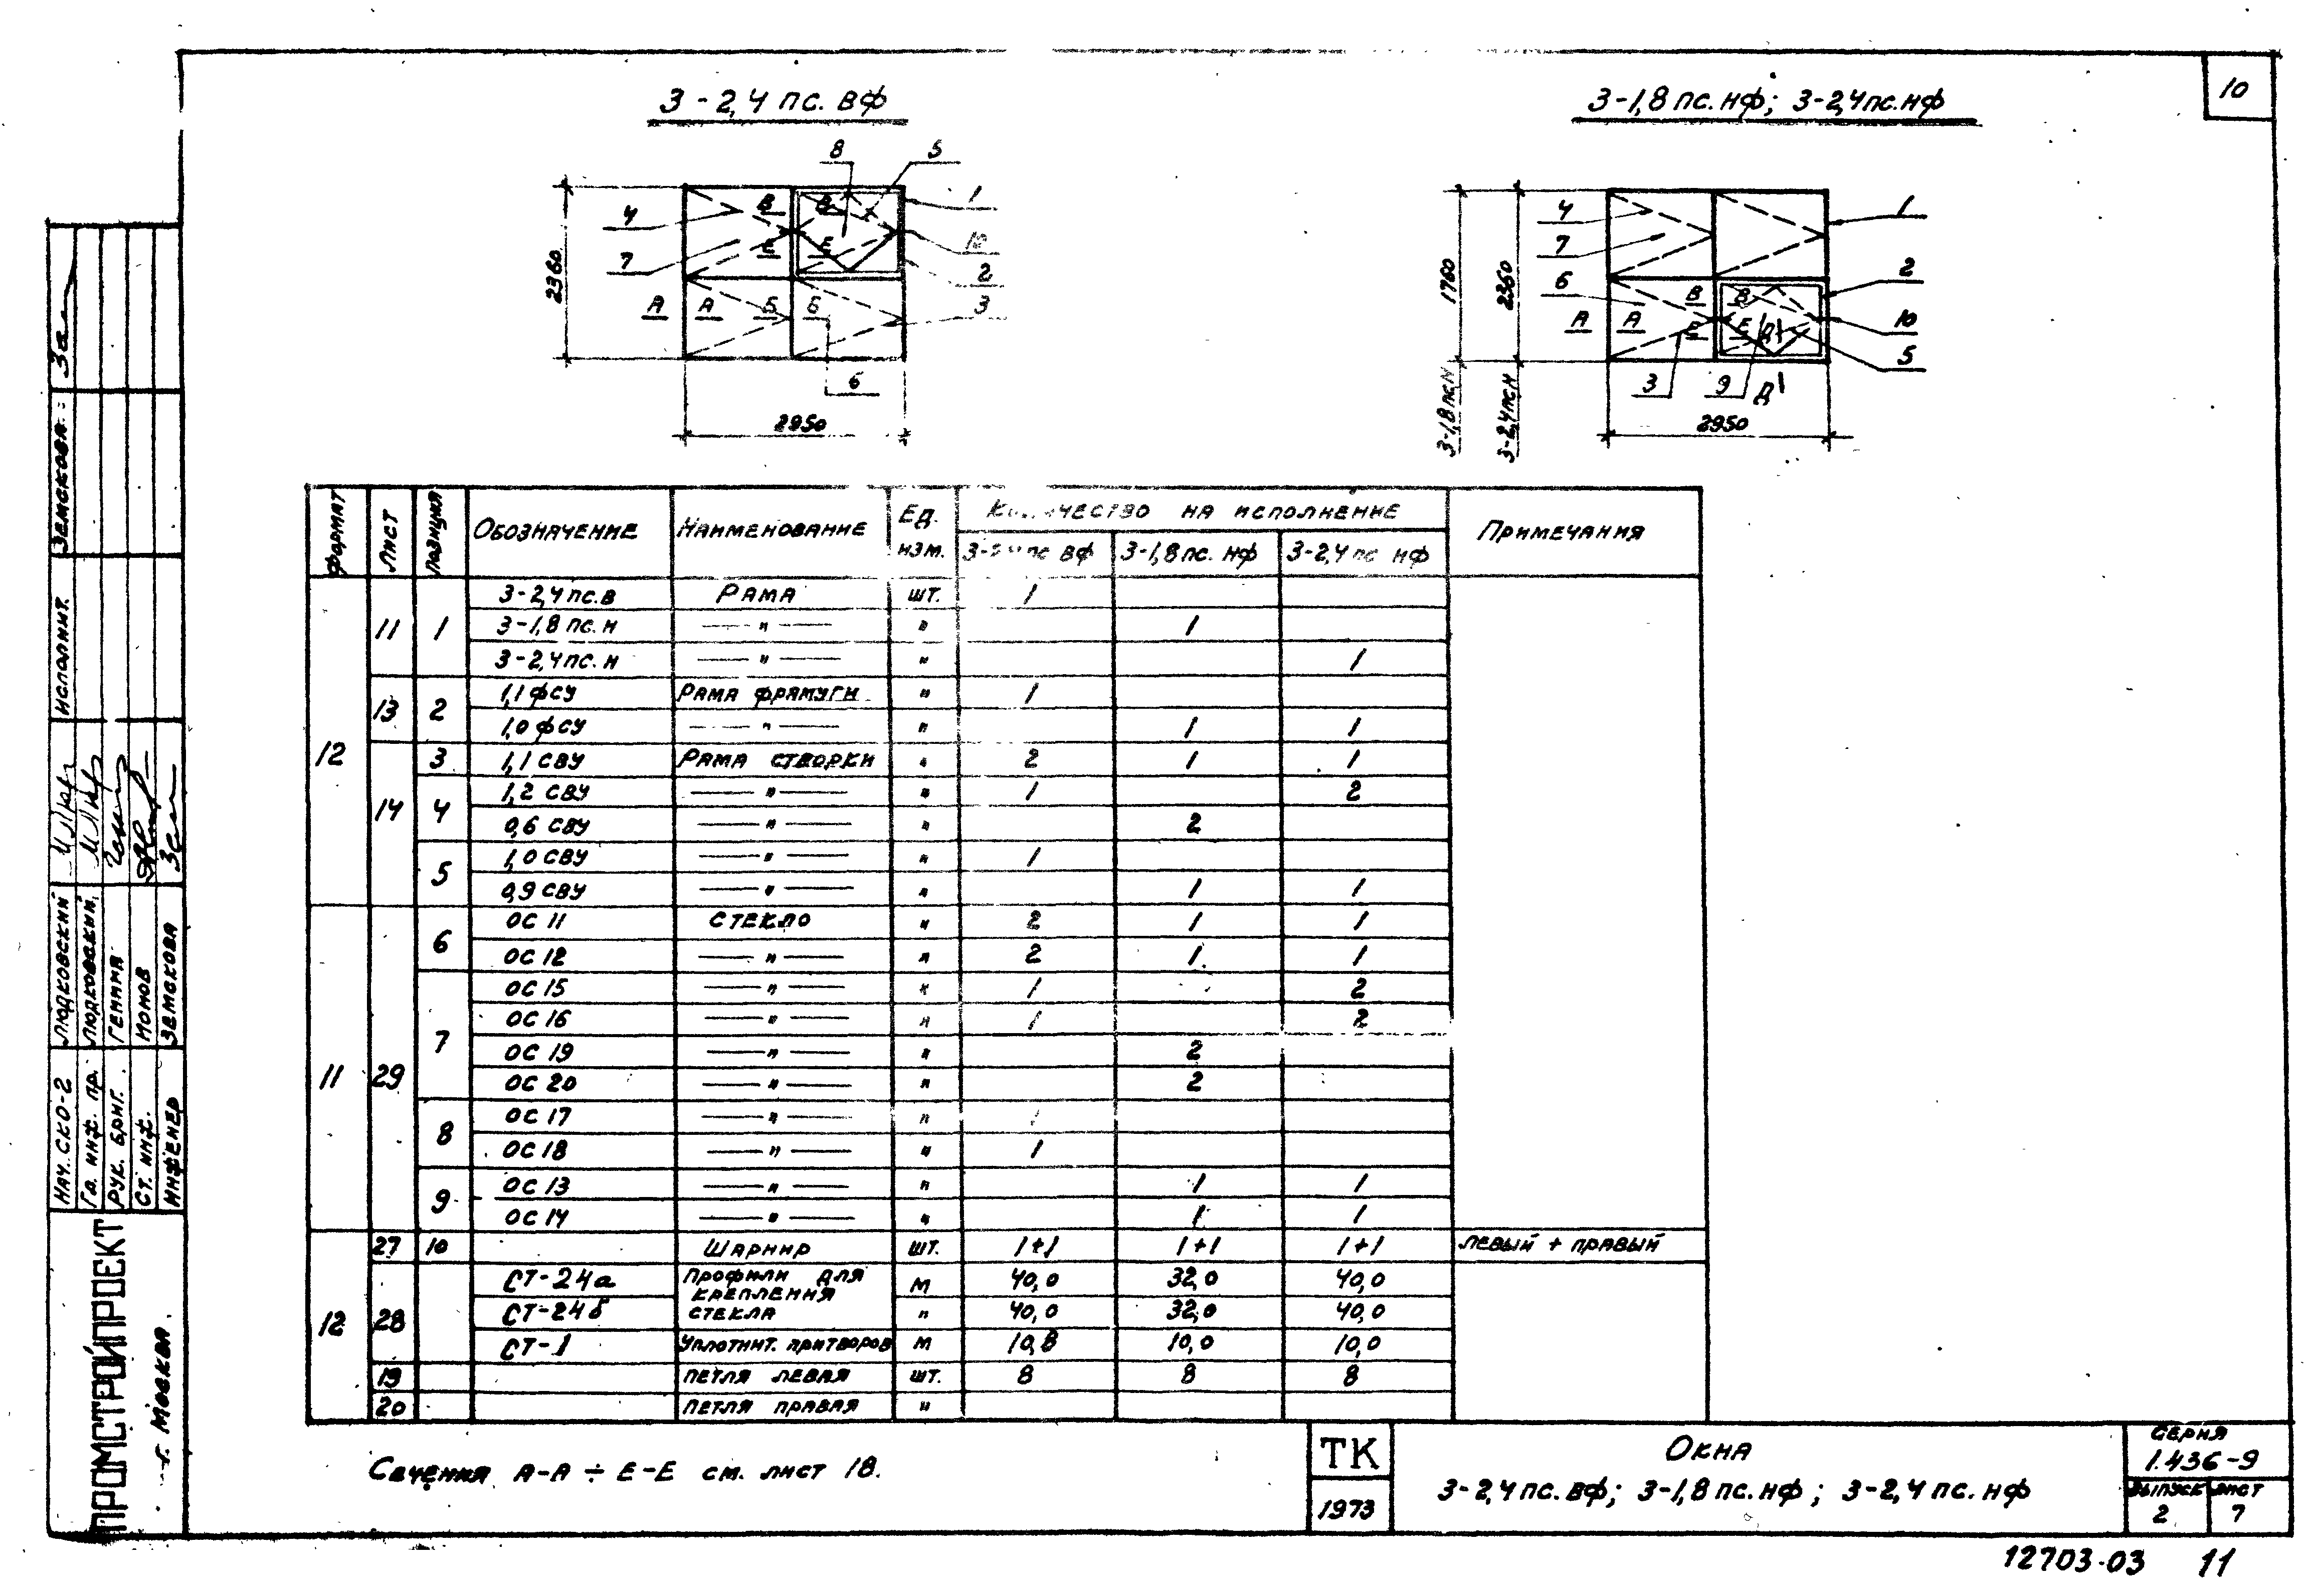 10
3-2,4 пс. ВФ
3-1,8 пс. НФ; 3-2,4 пс. НФ
8 5 1 4 7 10 2 3 6
В В Е Е А А Б Б
2360
2950
4 7 6 1 2 10 5 3 9
В В Е Е А А Д Д
1760 2360
3-1,8 псн 3-2,4 псн
2950
Формат Лист Позиция Обозначение Наименование Ед. изм. Количество на исполнение Примечания
3-2,4 пс ВФ 3-1,8 пс. НФ 3-2,4 пс НФ
12 11 1 3-2,4 пс. в Рама шт. 1
3-1,8 пс. н —"— " 1
3-2,4 пс. н —"— " 1
13 2 1,1 ФСУ Рама фрамуги " 1
1,0 ФСУ —"— " 1 1
14 3 1,1 СВУ Рама створки " 2 1 1
4 1,2 СВУ —"— " 1 2
0,6 СВУ —"— " 2
5 1,0 СВУ —"— " 1
0,9 СВУ —"— " 1 1
11 29 6 ОС 11 Стекло " 2 1 1
ОС 12 —"— " 2 1 1
7 ОС 15 —"— " 1 2
ОС 16 —"— " 1 2
ОС 19 —"— " 2
ОС 20 —"— " 2
8 ОС 17 —"— " 1
ОС 18 —"— " 1
9 ОС 13 —"— " 1 1
ОС 14 —"— " 1 1
12 27 10 Шарнир шт. 1+1 1+1 1+1 левый + правый
28 СТ-24а Профили для крепления стекла м 40,0 32,0 40,0
СТ-24б " 40,0 32,0 40,0
СТ-1 Уплотнит. притворов м 10,8 10,0 10,0
19 Петля левая шт. 8 8 8
20 Петля правая "
Сечения А-А ÷ Е-Е см. лист 18.
ТК
1973
Окна
3-2,4 пс. ВФ; 3-1,8 пс. НФ; 3-2,4 пс. НФ
Серия
1.436-9
Выпуск Лист
2 7
12703-03 11
Исполнит. Земскова
Нач. СКО-2 Людковский
Гл. инж. пр. Людковский
Рук. бриг. Генина
Ст. инж. Момов
Инженер Земскова
ПРОМСТРОЙПРОЕКТ
г. Москва.